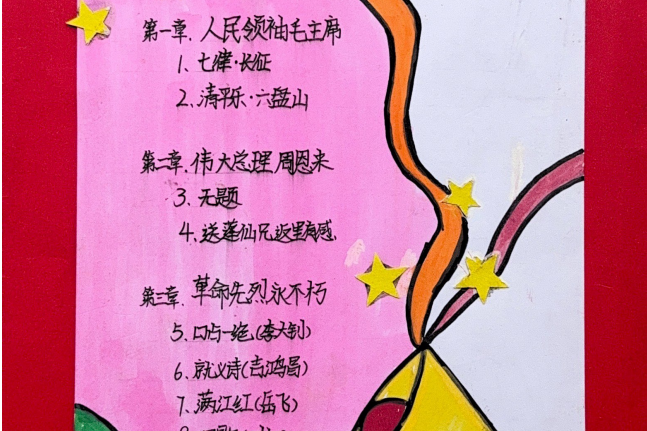 第一章. 人民领袖毛主席
1. 七律·长征
2. 清平乐·六盘山
第二章. 伟大总理 周恩来
3. 无题
4. 送蓬仙兄返里有感
第三章. 革命先烈永不朽
5. 口占一绝(李大钊)
6. 就义诗(吉鸿昌)
7. 满江红(岳飞)
8.